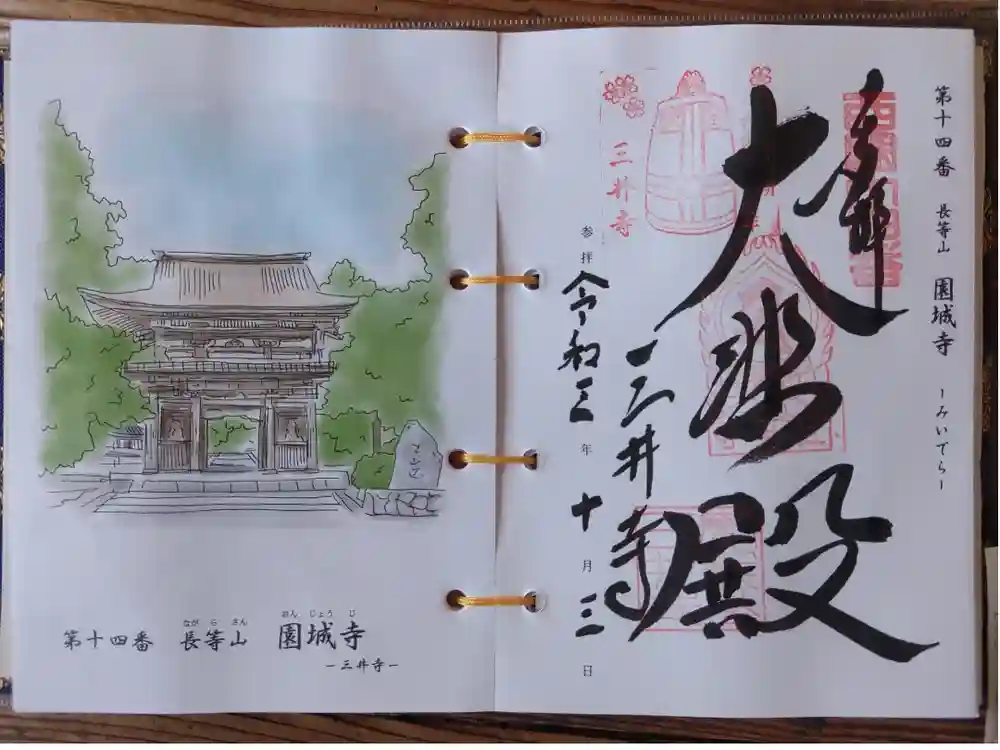 第十四番 長等山 園城寺
ながらさん おんじょうじ
ー三井寺ー
第十四番 長等山 園城寺 ーみいでらー
奉拝
大悲殿
三井寺
三井寺
参拝 令和三年十月三日